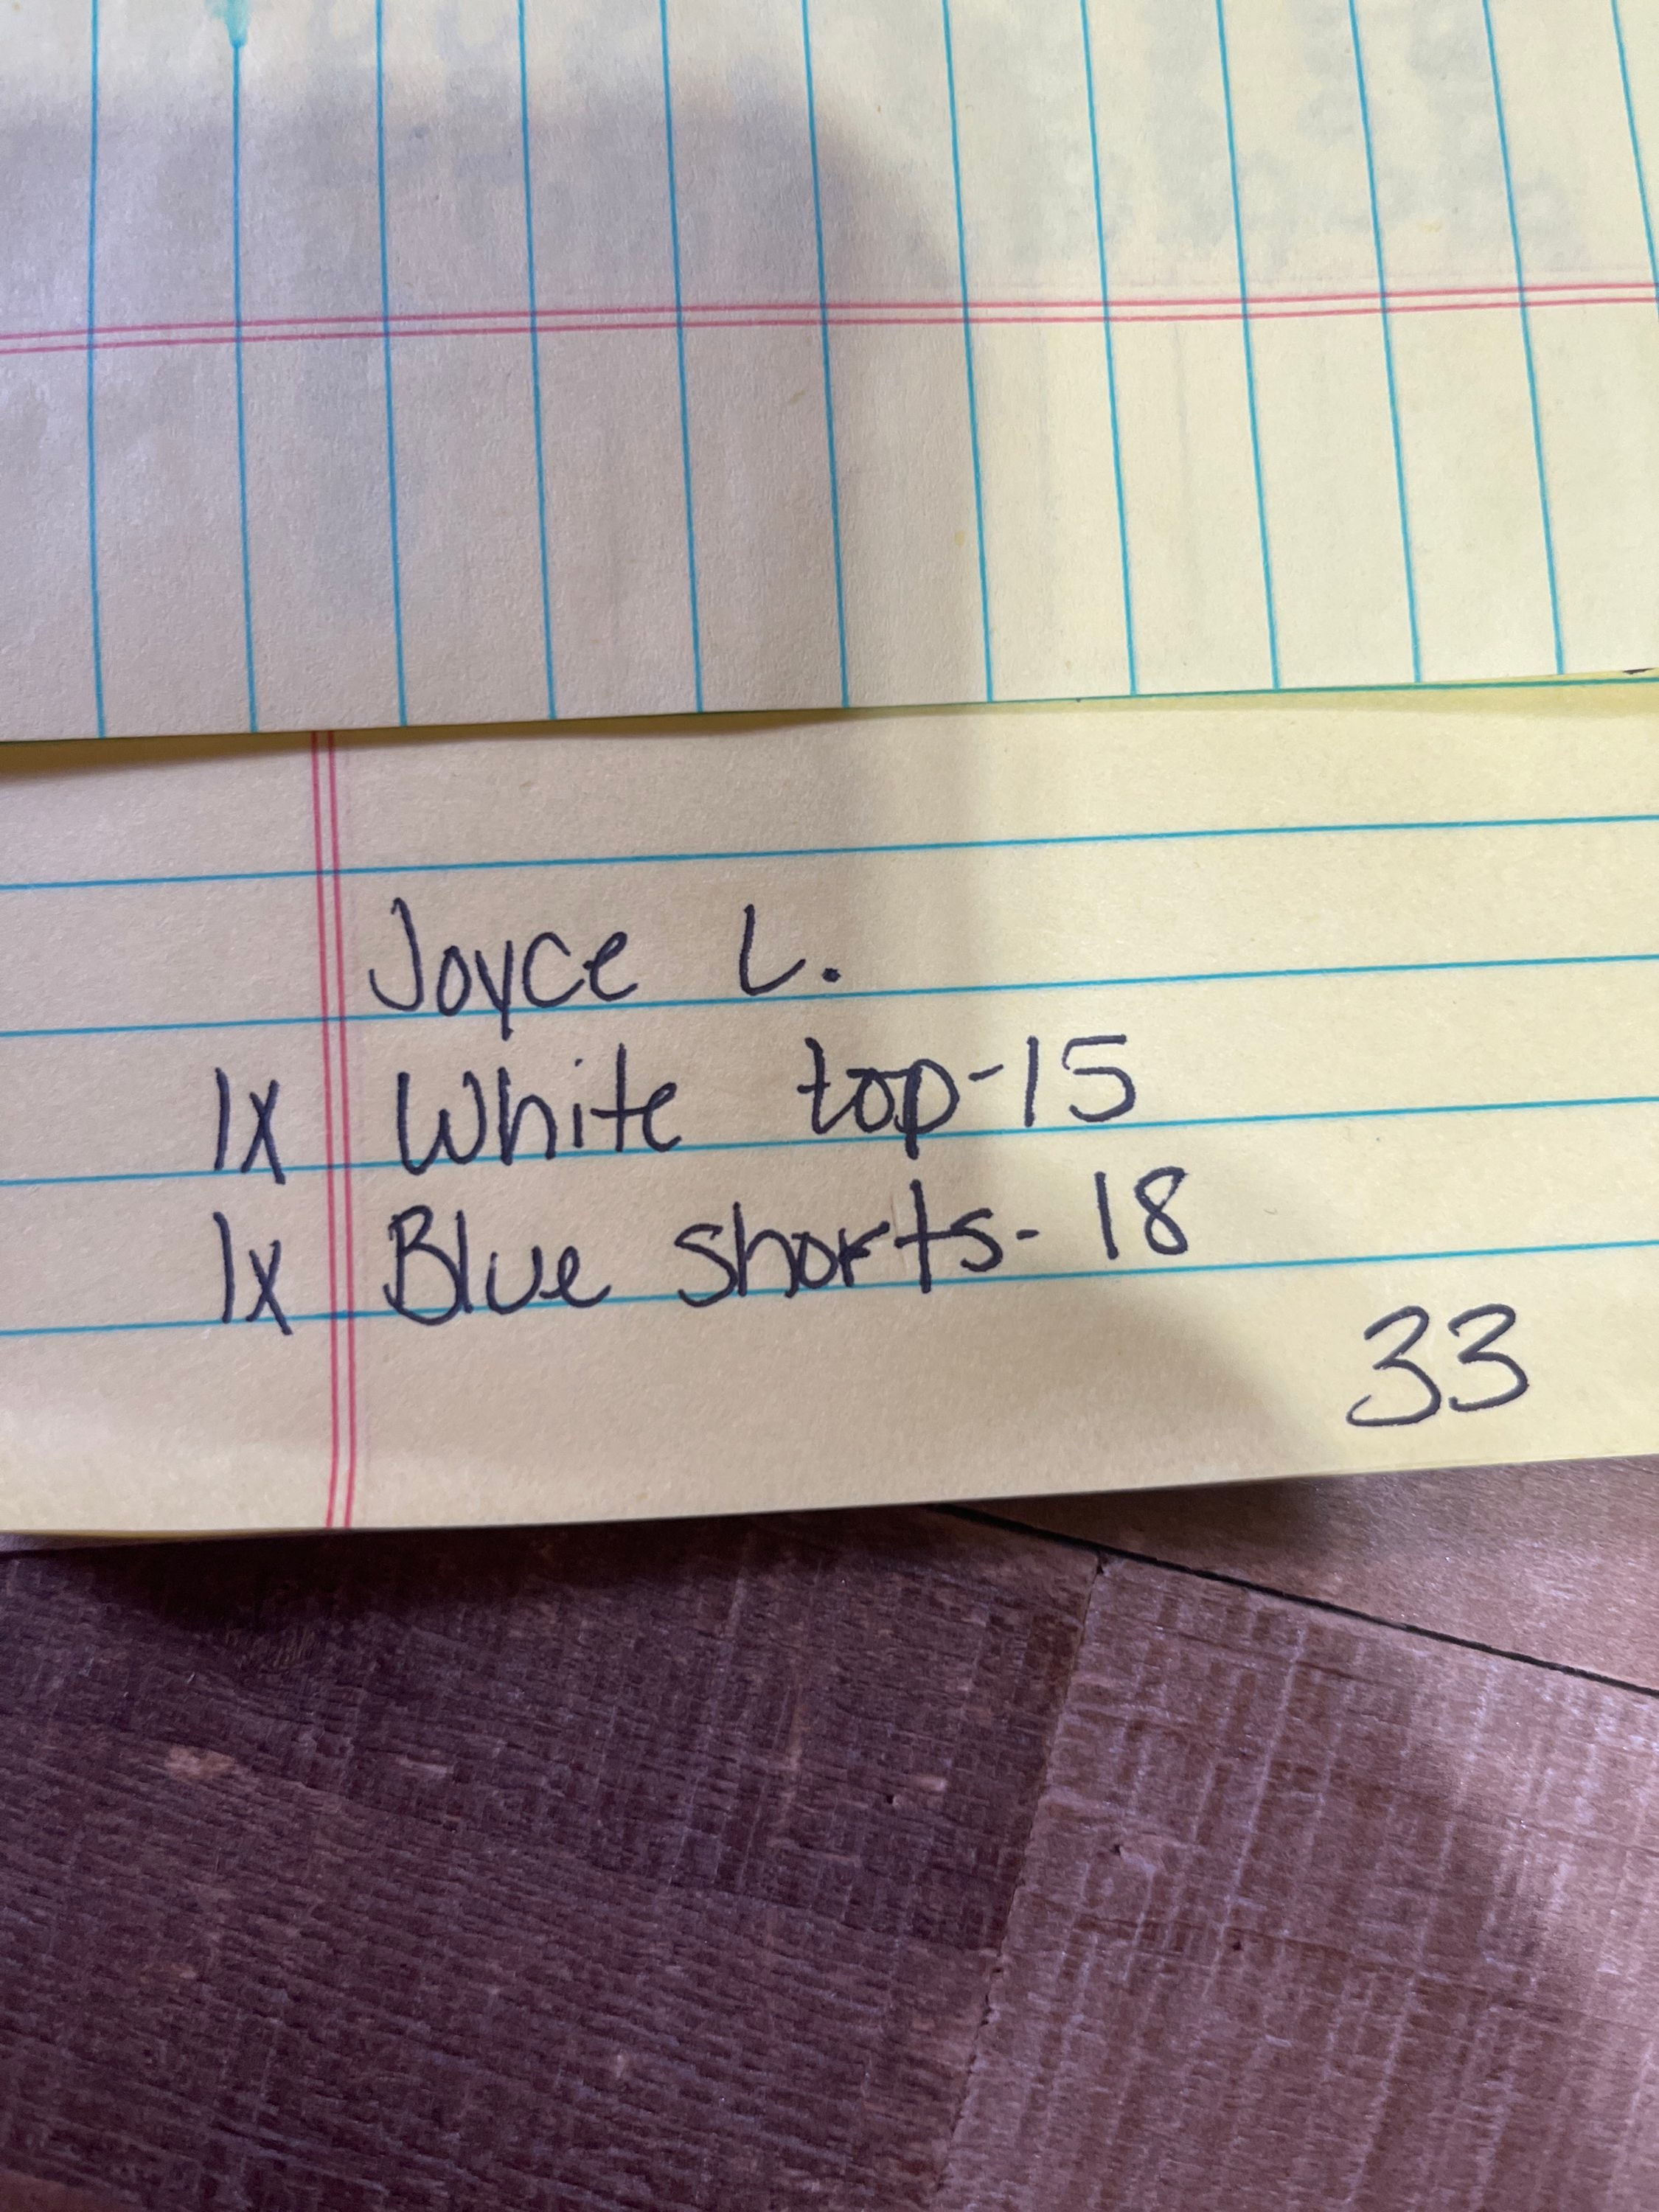 Joyce L.
1x White top-15
1x Blue shorts-18
33